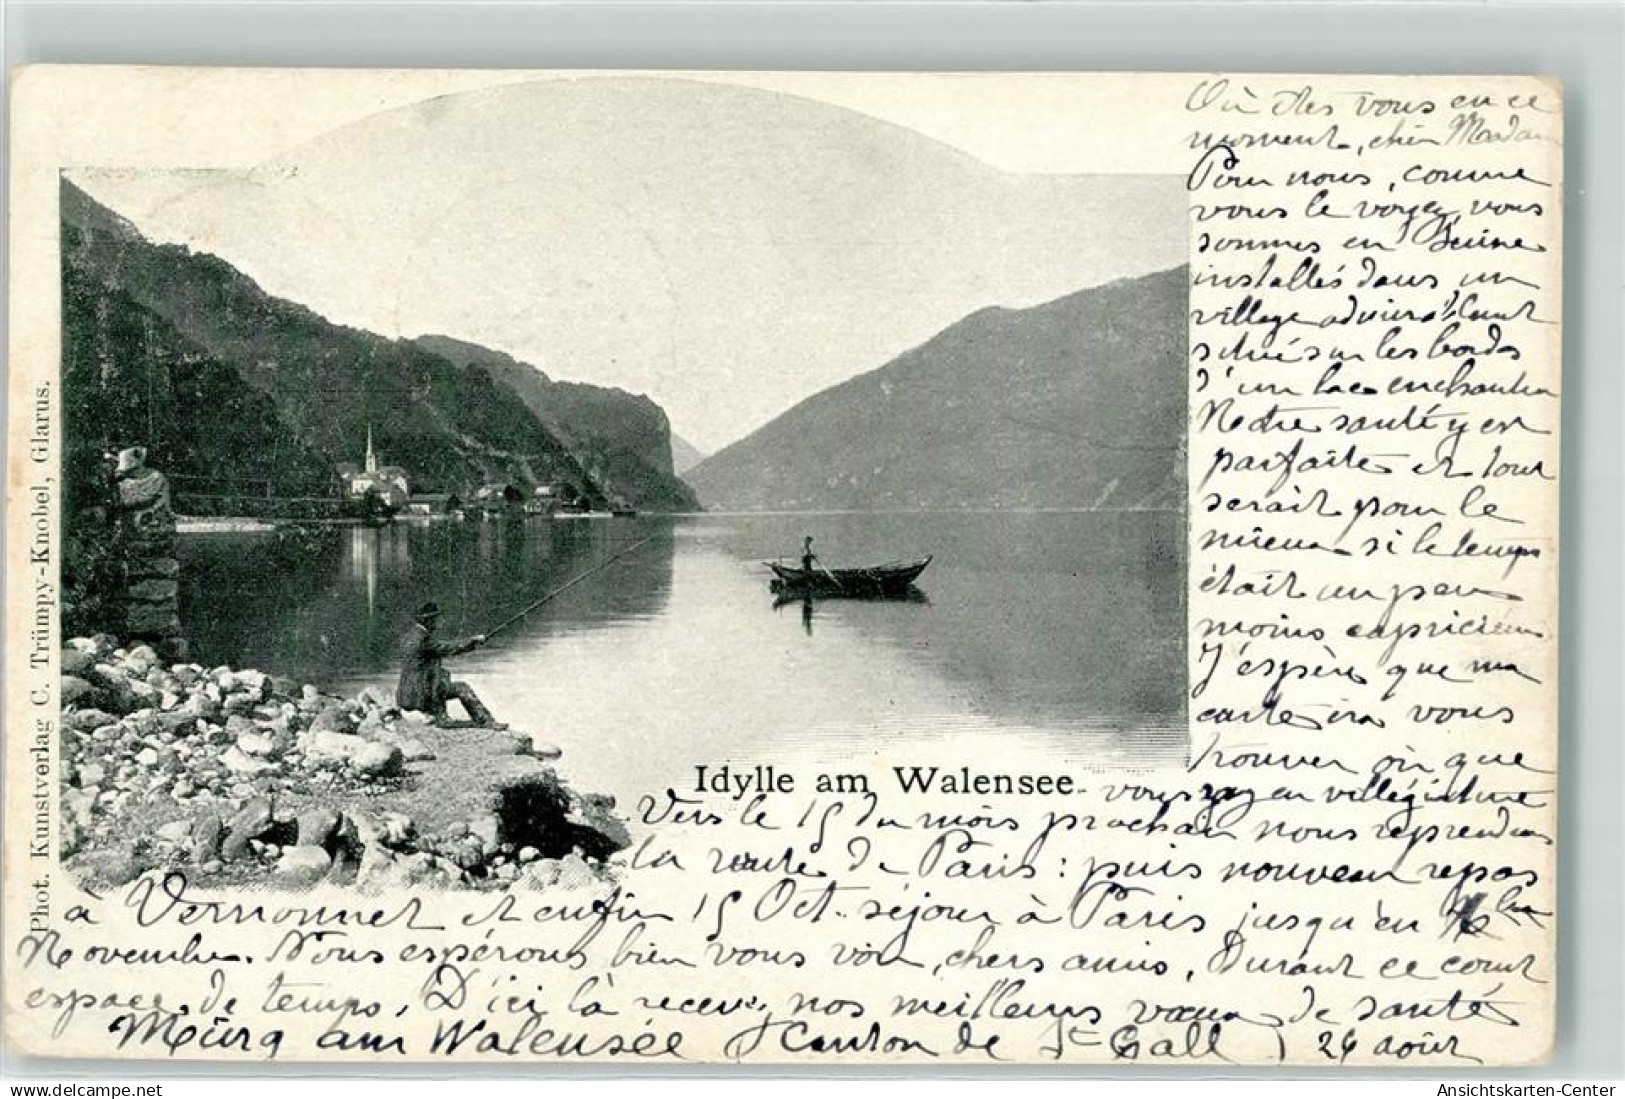 Où êtes vous en ce
moment, chère Madam
Pour nous, comme
vous le voyez, nous
sommes en Suisse
installés dans un
village admirablement
situé sur les bords
d'un lac enchanteur
Notre santé y est
parfaite et tout
serait pour le
mieux si le temps
était un peu
moins capricieux
J'espère que ma
carte ira vous
trouver où que
vous soyez en villégiature
Phot. Kunstverlag C. Trümpy-Knobel, Glarus.
Idylle am Walensee.
Vers le 15 du mois prochain nous reprendrons
la route de Paris : puis nouveau repas
à Vernonnet et enfin 15 Oct. séjour à Paris jusqu'en
Novembre. Nous espérons bien vous voir, chers amis, Durant ce court
espace de temps. D'ici là recevez nos meilleurs vœux de santé
Mürg am Walensée (Canton de St Gall) 26 août
Ansichtskarten-Center